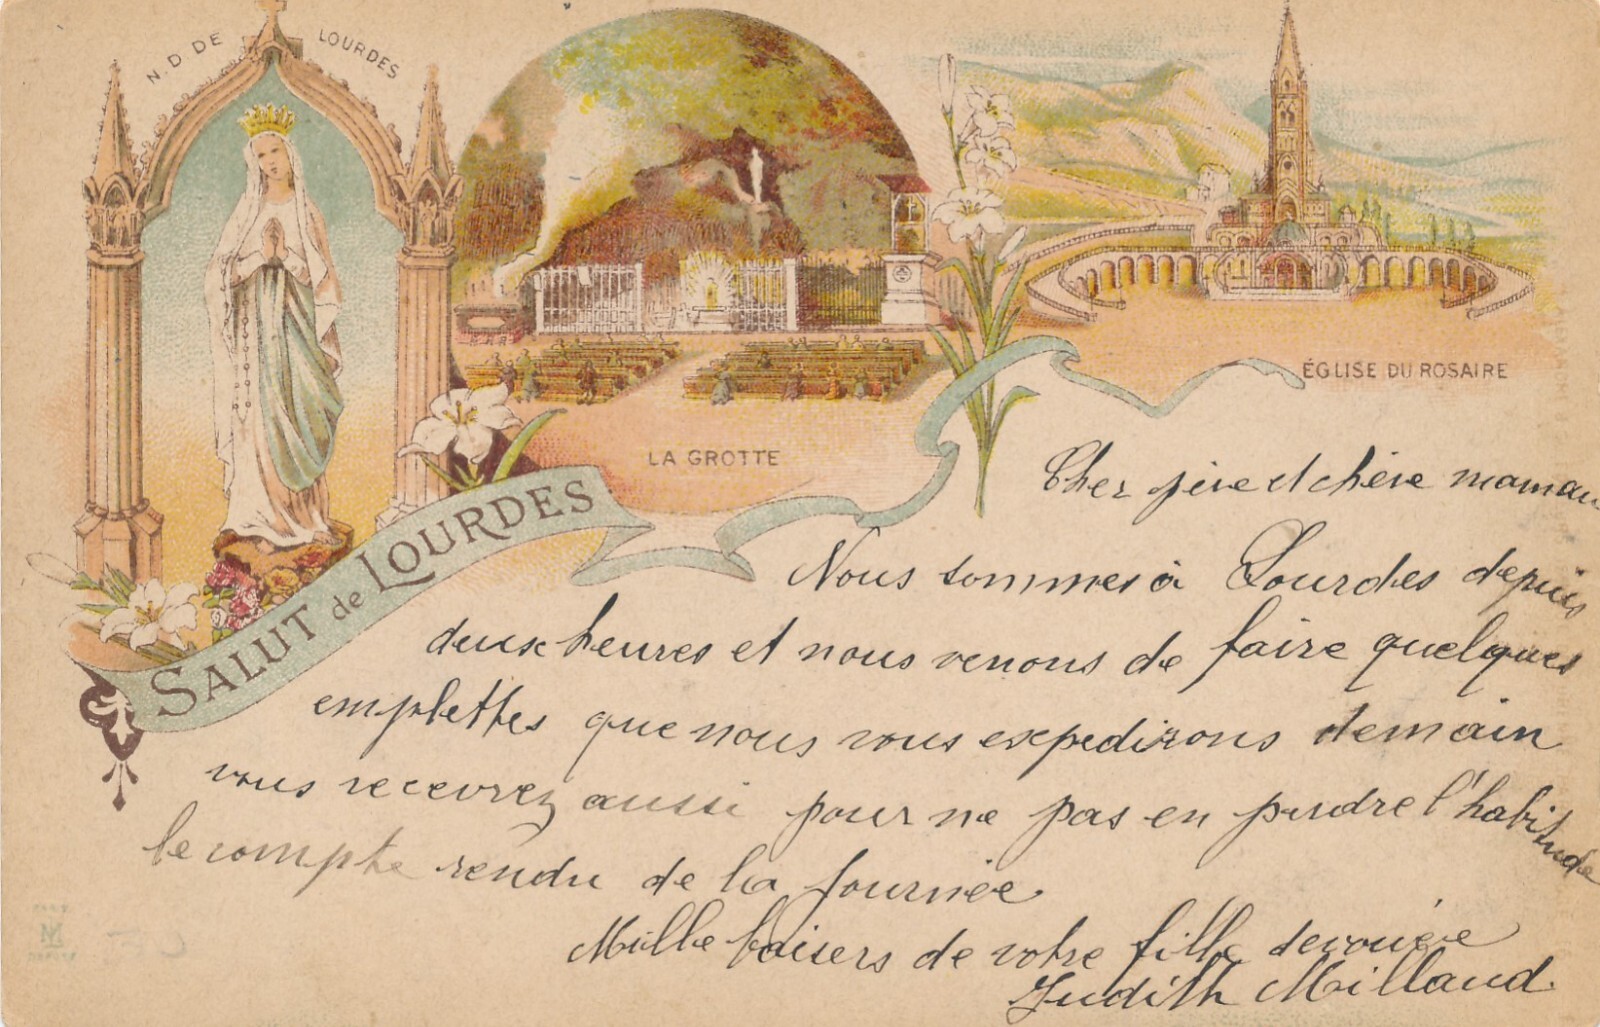 N. D. DE LOURDES
LA GROTTE
ÉGLISE DU ROSAIRE
SALUT de LOURDES
Cher père et chère maman
Nous sommes à Lourdes depuis
deux heures et nous venons de faire quelques
emplettes que nous vous expedirons demain
vous recevrez aussi pour ne pas en perdre l'habitude
le compte rendu de la journée
Mille baisers de votre fille devouée
Judith Millaud.